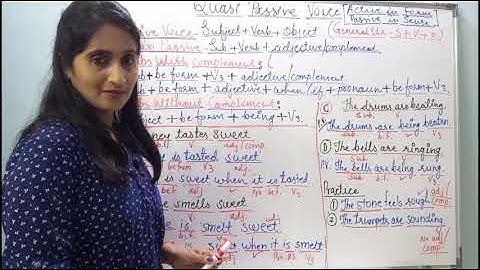 Quasi Passive Voice
Active in Form
Passive in Sense
Voice - Subject + Verb + Object
(General Str - S + V + O)
Passive - Sub + Verb + adjective/complement
With Complement:
+ be form + V3 + adjective/complement
+ be form + adjective + when/if + pronoun + be form + V3.
Without Complement:
ject + be form + being + V3.
ney tastes sweet
V adj./comp.
is tasted sweet
be form V3 adj.
sweet when it is tasted.
adj. b.f. V3
smells sweet
V adj.
is smelt sweet.
b.f. V3 adj.
is sweet when it is smelt
b.f. V3
C The drums are beating.
Sub. V
P.V. The drums are being beaten
Sub. b.f. V3
D The bells are ringing.
Sub. V
P.V. The bells are being rung.
Sub. b.f. V3
Practice
adj/comp.
① The stone feels rough.
② The trumpets are sounding.
No adj/comp.